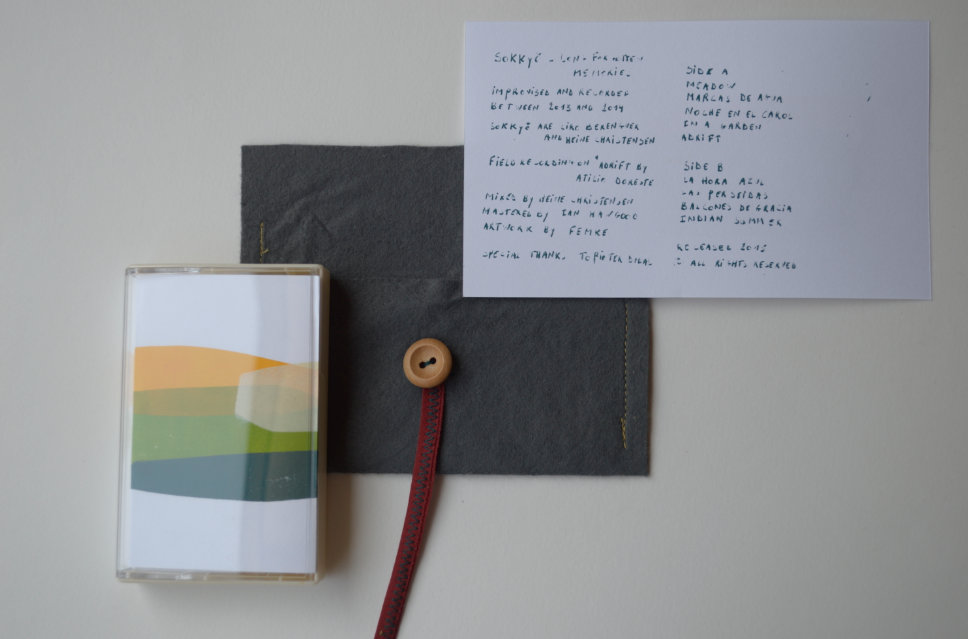 SOKKYŌ - LONG FORGOTTEN
MEMORIES
IMPROVISED AND RECORDED
BETWEEN 2013 AND 2014
SOKKYŌ ARE SIRO BERENGUER
AND HEINE CHRISTENSEN
FIELD RECORDING ON "ADRIFT" BY
ATILIO DORESTE
MIXED BY HEINE CHRISTENSEN
MASTERED BY IAN HAWGOOD
ARTWORK BY FEMKE
SPECIAL THANKS TO PIETER
SIDE A
MEADOW
MARCAS DE AGUA
NOCHE EN EL CAROL
IN A GARDEN
ADRIFT
SIDE B
LA HORA AZUL
LAS PERSEIDAS
BALCONES DE GRACIA
INDIAN SUMMER
RELEASED
ALL RIGHTS RESERVED